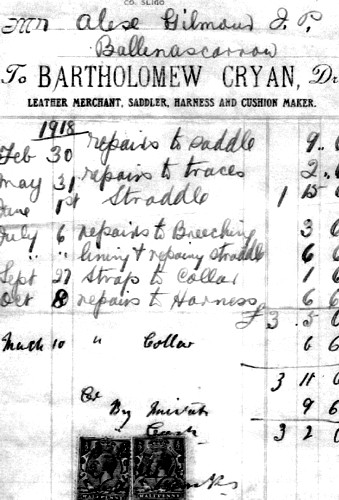 CO. SLIGO
Mr Alex Gilmour J.P.
Ballinascarrow
To BARTHOLOMEW CRYAN, Dr
LEATHER MERCHANT, SADDLER, HARNESS AND CUSHION MAKER.
1918
Feb 30 repairs to saddle 9 . 6
May 31 repairs to traces 2 . 6
June 1st Straddle 1 15 0
July 6 repairs to Breeching 3 6
" " lining & repairing straddle 6 6
Sept 27 Strap to Collar 1 6
Oct 8 repairs to Harness 6 6
£ 3 . 5 0
March 10 " Collar 6 6
3 11 6
Cr
By 9 6
Cash 3 2 0
HALFPENNY HALFPENNY